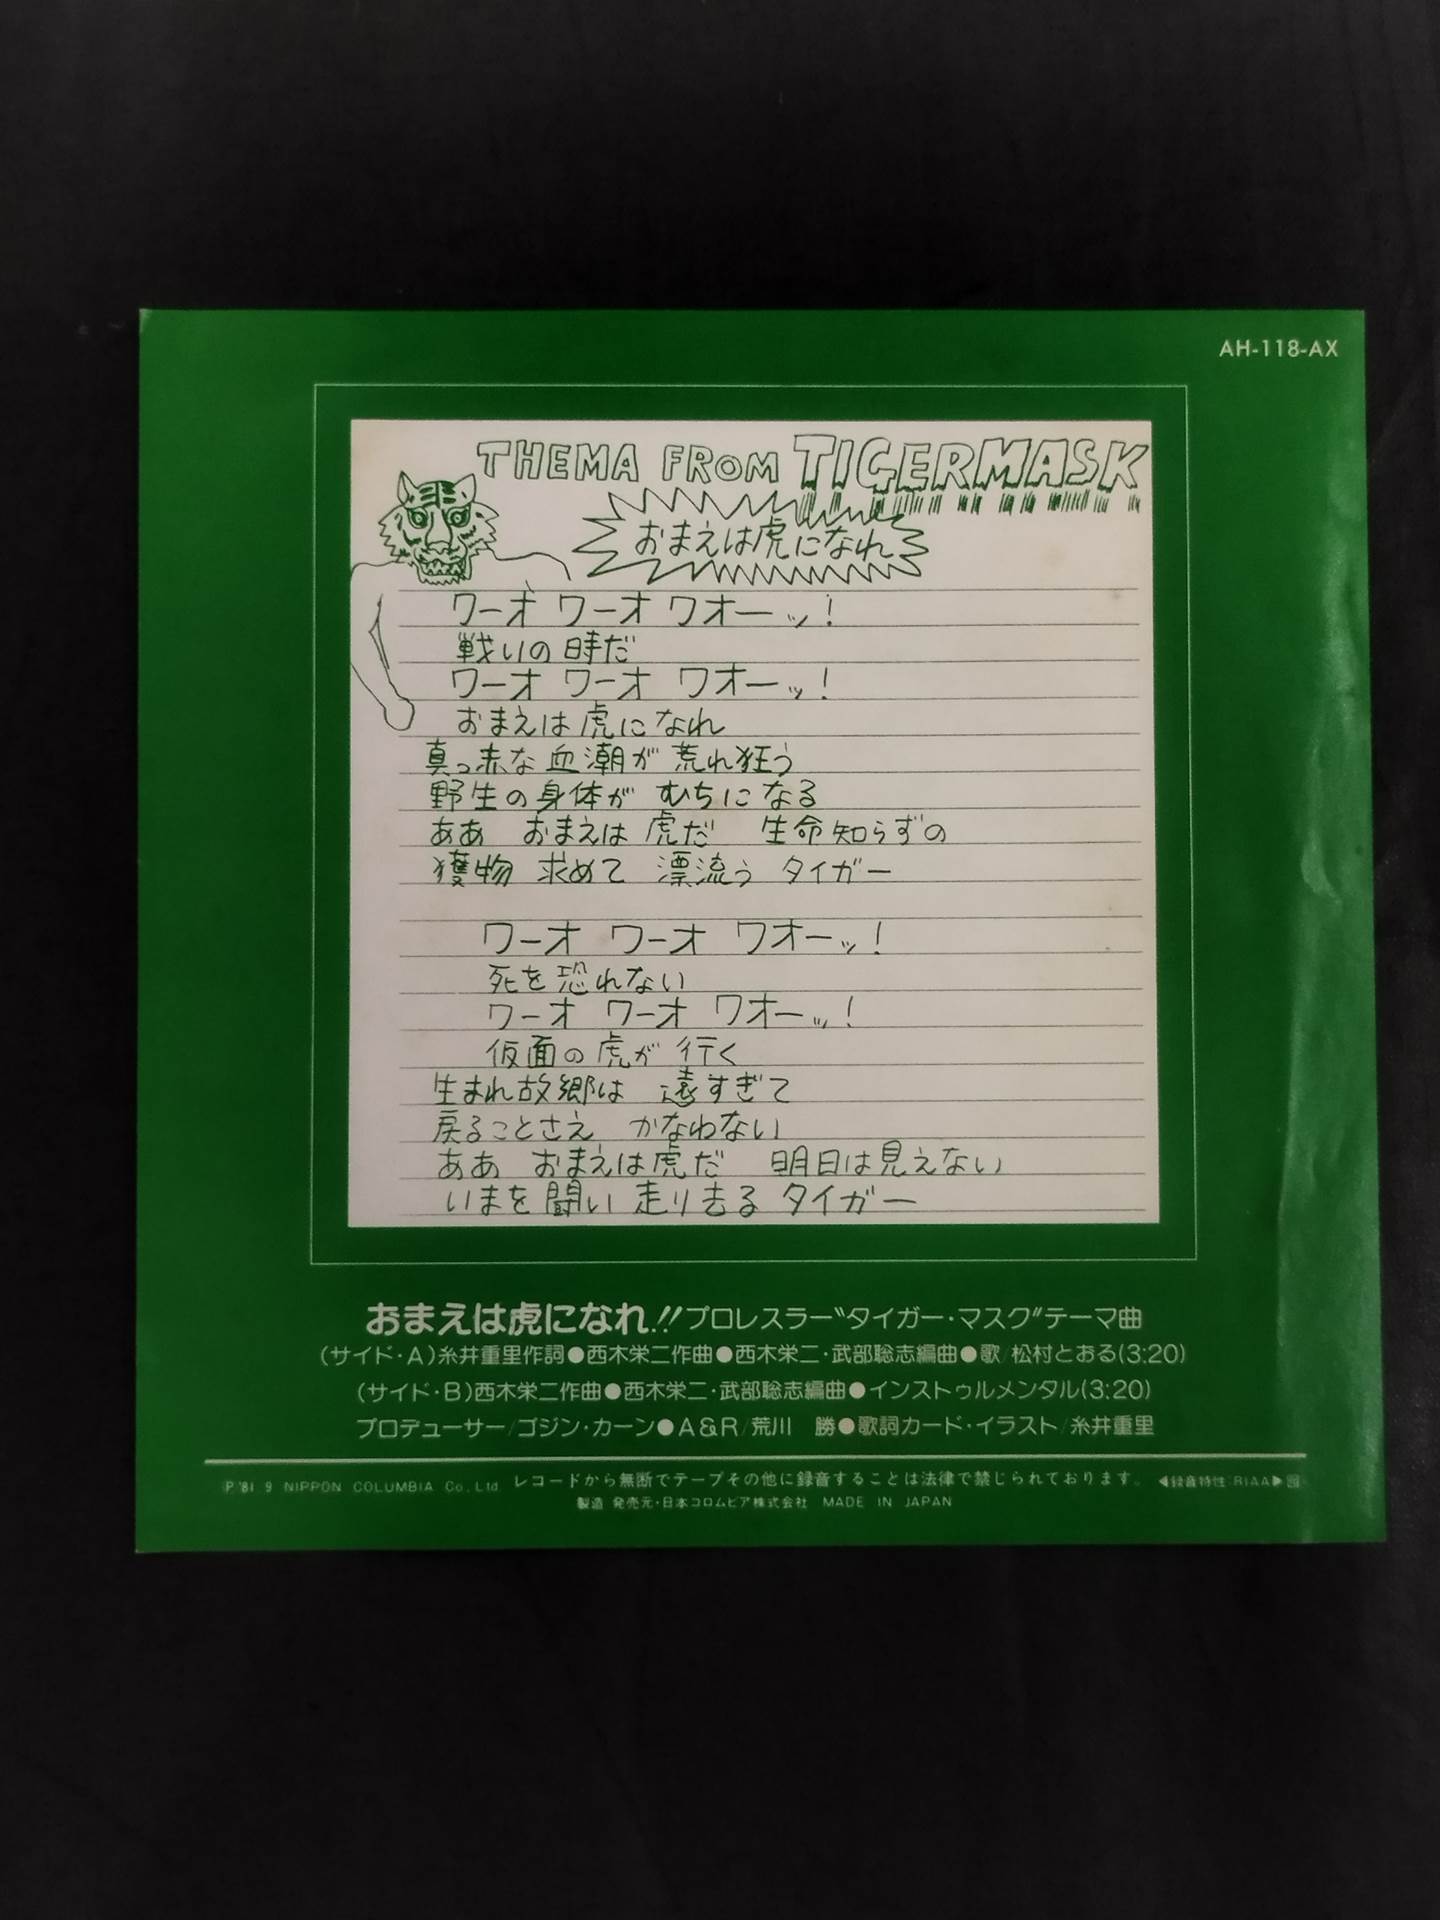 AH-118-AX
THEMA FROM TIGERMASK
おまえは虎になれ
ワーオ ワーオ ワオーッ!
戦いの時だ
ワーオ ワーオ ワオーッ!
おまえは虎になれ
真っ赤な血潮が荒れ狂う
野生の身体が むちになる
ああ おまえは虎だ 生命知らずの
獲物 求めて 漂流う タイガー
ワーオ ワーオ ワオーッ!
死を恐れない
ワーオ ワーオ ワオーッ!
仮面の虎が 行く
生まれ故郷は 遠すぎて
戻ることさえ かなわない
ああ おまえは虎だ 明日は見えない
いまを闘い 走り去る タイガー
おまえは虎になれ!!プロレスラー"タイガー・マスク"テーマ曲
(サイド・A)糸井重里作詞●西木栄二作曲●西木栄二・武部聡志編曲●歌/松村とおる(3:20)
(サイド・B)西木栄二作曲●西木栄二・武部聡志編曲●インストゥルメンタル(3:20)
プロデューサー/ゴジン・カーン●A&R/荒川 勝●歌詞カード・イラスト/糸井重里
P'81 9 NIPPON COLUMBIA Co., Ltd. レコードから無断でテープその他に録音することは法律で禁じられております。 ◀録音特性:RIAA▶
製造 発売元・日本コロムビア株式会社 MADE IN JAPAN